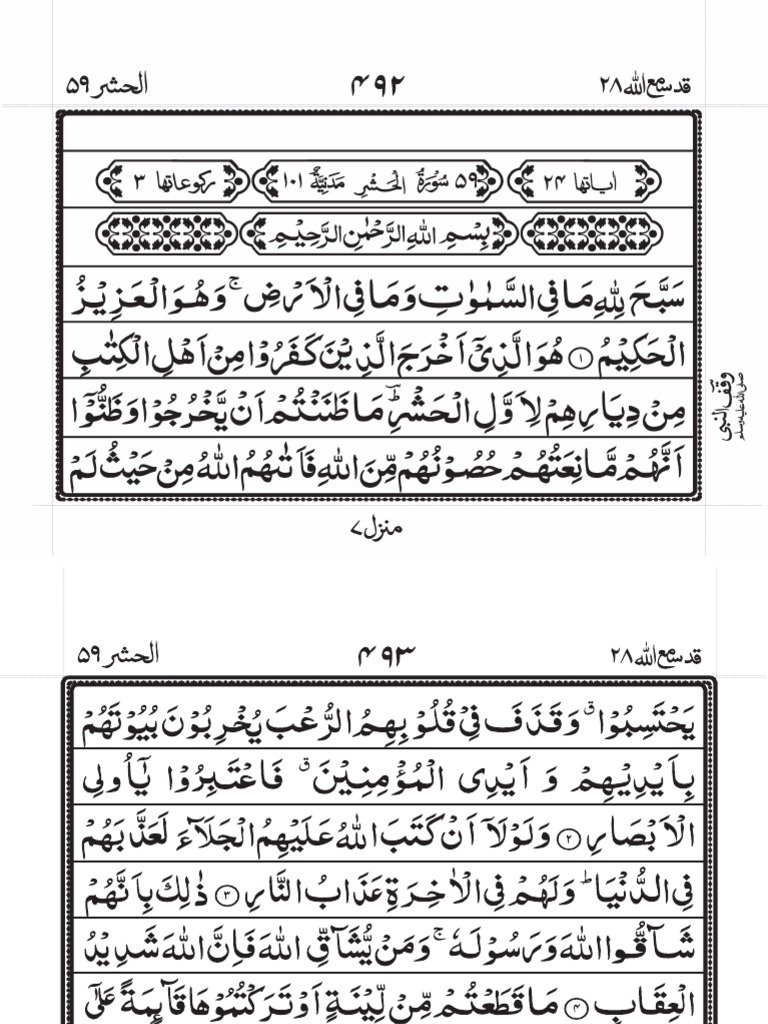 قد سمع الله ۲۸
۴۹۲
الحشر ۵۹
اٰیاتها ۲۴
۵۹ سُوْرَةُ الْحَشْرِ مَدَنِیَّةٌ ۱۰۱
رکوعاتها ۳
بِسْمِ اللهِ الرَّحْمٰنِ الرَّحِیْمِ
سَبَّحَ لِلّٰهِ مَا فِی السَّمٰوٰتِ وَمَا فِی الْاَرْضِ ۚ وَهُوَ الْعَزِیْزُ
الْحَكِیْمُ ۝۱ هُوَ الَّذِیْۤ اَخْرَجَ الَّذِیْنَ كَفَرُوْا مِنْ اَهْلِ الْكِتٰبِ
مِنْ دِیَارِهِمْ لِاَوَّلِ الْحَشْرِ ؕ مَا ظَنَنْتُمْ اَنْ یَّخْرُجُوْا وَظَنُّوْۤا
اَنَّهُمْ مَّانِعَتُهُمْ حُصُوْنُهُمْ مِّنَ اللهِ فَاَتٰىهُمُ اللهُ مِنْ حَیْثُ لَمْ
وقف النبی صلی الله علیه وسلم
منزل ۷
قد سمع الله ۲۸
۴۹۳
الحشر ۵۹
یَحْتَسِبُوْا ۗ وَقَذَفَ فِیْ قُلُوْبِهِمُ الرُّعْبَ یُخْرِبُوْنَ بُیُوْتَهُمْ
بِاَیْدِیْهِمْ وَ اَیْدِی الْمُؤْمِنِیْنَ ۗ فَاعْتَبِرُوْا یٰۤاُولِی
الْاَبْصَارِ ۝۲ وَلَوْلَاۤ اَنْ كَتَبَ اللهُ عَلَیْهِمُ الْجَلَآءَ لَعَذَّبَهُمْ
فِی الدُّنْیَا ؕ وَلَهُمْ فِی الْاٰخِرَةِ عَذَابُ النَّارِ ۝۳ ذٰلِكَ بِاَنَّهُمْ
شَآقُّوا اللهَ وَرَسُوْلَهٗ ۚ وَمَنْ یُّشَآقِّ اللهَ فَاِنَّ اللهَ شَدِیْدُ
الْعِقَابِ ۝۴ مَا قَطَعْتُمْ مِّنْ لِّیْنَةٍ اَوْ تَرَكْتُمُوْهَا قَآىِٕمَةً عَلٰۤی